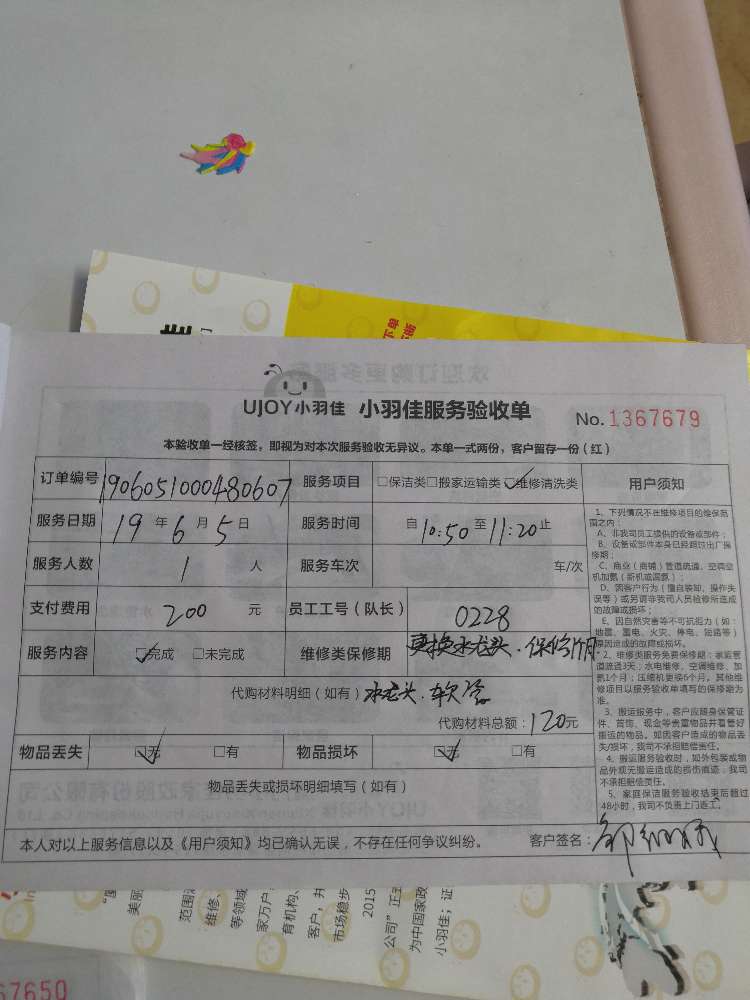 下单
UJOY小羽佳 小羽佳服务验收单 No. 1367679
本验收单一经核签，即视为对本次服务验收无异议。本单一式两份，客户留存一份（红）
订单编号 1906051000480607 服务项目 □保洁类□搬家运输类☑维修清洗类 用户须知
服务日期 19年6月5日 服务时间 自10:50至11:20止
服务人数 1人 服务车次 车/次
支付费用 200元 员工工号（队长） 0228
服务内容 ☑完成 □未完成 维修类保修期 更换水龙头.保修1个月
代购材料明细（如有） 水龙头.软管
代购材料总额：120元
物品丢失 ☑无 □有 物品损坏 ☑无 □有
物品丢失或损坏明细填写（如有）
本人对以上服务信息以及《用户须知》均已确认无误，不存在任何争议纠纷。 客户签名：
1、下列情况不在维修项目的维保范
围之内：
A、非我司员工提供的设备或部件；
B、设备或部件本身已经超过出厂保
修期；
C、商业（商铺）管道疏通、空调空
机加氨（新机或漏氨）；
D、因客户行为（擅自装卸、操作失
误等）或另请非我司人员检修所造成
的故障或损坏；
E、因自然灾害等不可抗拒力（如：
地震、雷电、火灾、停电、短路等）
原因造成的故障或损坏。
2、维修类服务免费保修期：家庭管
道疏通3天；水电维修、空调维修、加
氨1个月；压缩机更换6个月。其他维
修项目以服务验收单填写的保修期为
准。
3、搬运服务中，客户应随身保管证
件、首饰、现金等贵重物品并看管好
搬运的物品。如因客户造成的物品丢
失/损坏，我司不承担赔偿责任。
4、搬运服务验收时，如外包装或物
品外观无搬运造成的损伤痕迹，我司
不承担赔偿责任。
5、家庭保洁服务验收结束后超过
48小时，我司不负责上门返工。
美丽
范围
维修、
等领域
家万户
育机构、
客户，并
市场稳步
2015
公司”正
为中国家政
小羽佳；证
67650